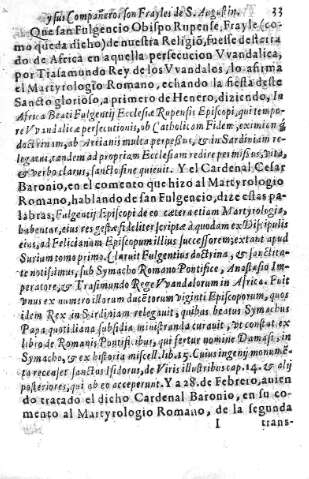 y sus Compañeros son Frayles de S. Augustin. 33
Que san Fulgencio Obispo Rupense, Frayle (co-
mo queda dicho) de nuestra Religiõ, fuesse desterra
do de Africa en aquella persecucion Vvandalica,
por Trasamundo Rey de los Vvandalos, lo afirma
el Martyrologio Romano, echando la fiesta deste
Sancto glorioso, a primero de Henero, diziendo, In
Africa Beati Fulgentij Ecclesiæ Rupensis Episcopi, qui tempo-
re Vvandalicæ persecutionis, ob Catholicam Fidem, eximiam q́;
doctrinam, ab Arrianis multa perpessus, & in Sardiniam re-
legatus, tandem ad propriam Ecclesiam redire permissus, vita,
& verbo clarus, sancto fine quieuit. Y el Cardenal Cesar
Baronio, en el comento que hizo al Martyrologio
Romano, hablando de san Fulgencio, dize estas pa-
labras; Fulgentij Episcopi de eo cætera etiam Martyrologia,
habentur, eius res gestæ fideliter scriptæ à quodam ex Discipulis
eius, ad Felicianum Episcopum illius successorem; extant apud
Surium tomo primo. Claruit Fulgentius doctrina, & sanctita-
te notissimus, sub Symacho Romano Pontifice, Anastasio Im-
peratore, & Trasimundo Rege Vvandalorum in Africa. Fuit
vnus ex numero illorum ducẽtorum viginti Episcoporum, quos
idem Rex in Sardiniam relegauit, quibus beatus Symachus
Papa quotidiana subsidia ministranda curauit, vt constat ex
libro de Romanis Pontificibus, qui fertur nomine Damasi, in
Symacho, & ex historia miscell. lib. 15. Cuius ingenij monumẽ-
ta recenset sanctus Isidorus, de Viris illustribus cap. 14. & alij
posteriores, qui ab eo acceperunt. Y a 28. de Febrero, auien
do tratado el dicho Cardenal Baronio, en su co-
mento al Martyrologio Romano, de la segunda
I trans-